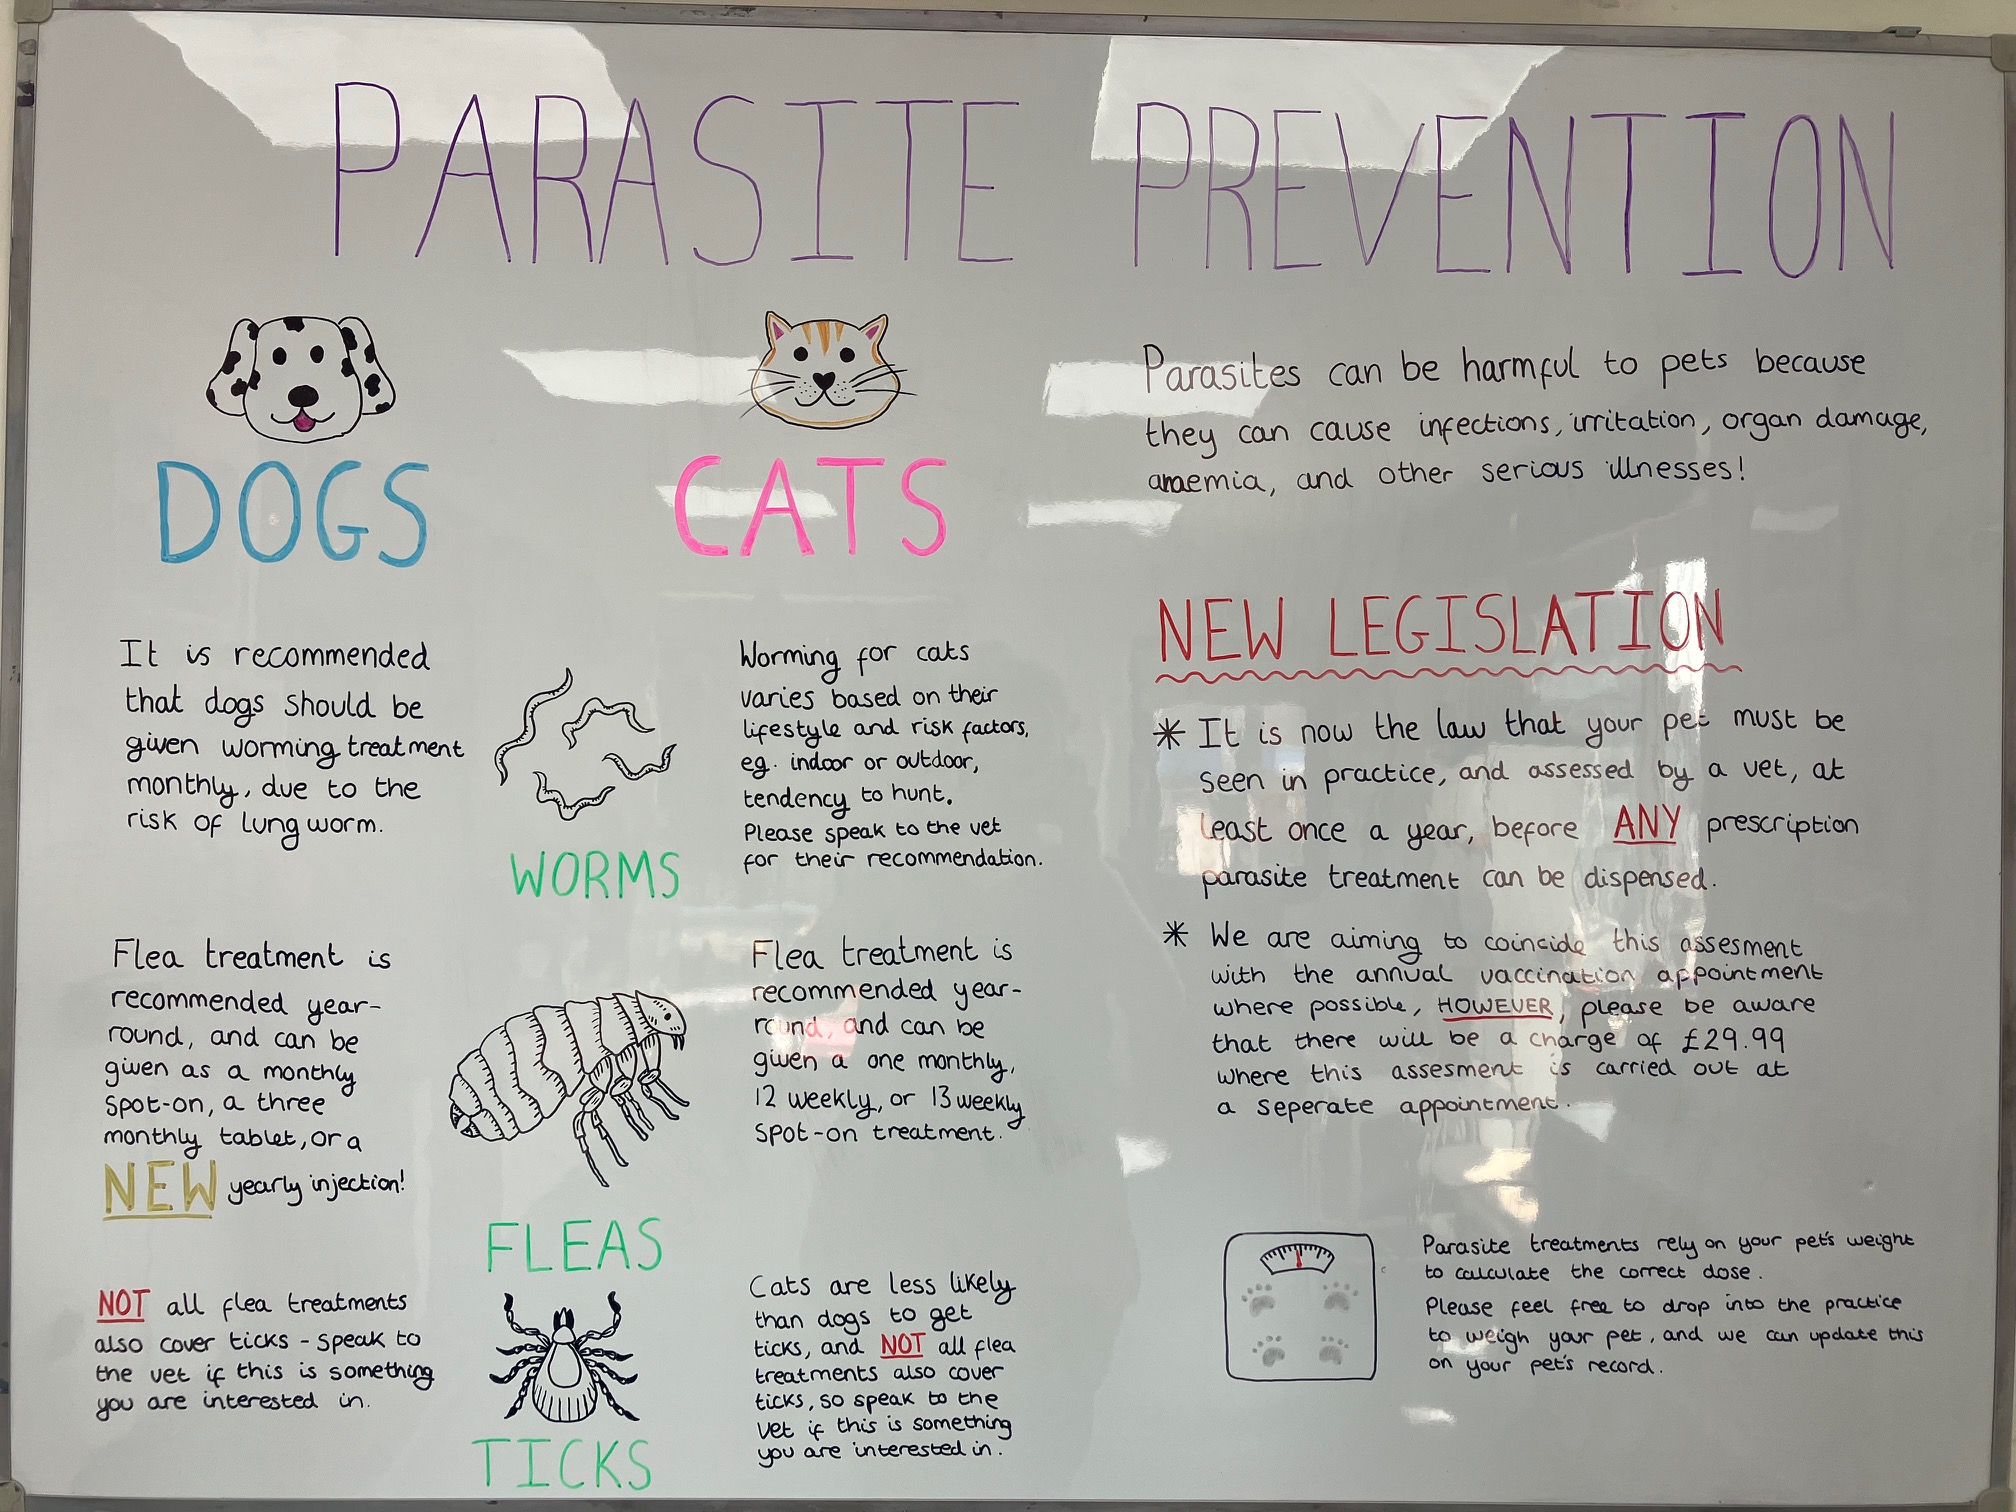 PARASITE PREVENTION
DOGS
CATS
It is recommended
that dogs should be
given worming treatment
monthly, due to the
risk of lungworm.
WORMS
Worming for cats
varies based on their
lifestyle and risk factors,
eg. indoor or outdoor,
tendency to hunt.
Please speak to the vet
for their recommendation.
Flea treatment is
recommended year-
round, and can be
given as a monthly
spot-on, a three
monthly tablet, or a
NEW yearly injection!
FLEAS
Flea treatment is
recommended year-
round, and can be
given a one monthly,
12 weekly, or 13 weekly
spot-on treatment.
NOT all flea treatments
also cover ticks - speak to
the vet if this is something
you are interested in.
TICKS
Cats are less likely
than dogs to get
ticks, and NOT all flea
treatments also cover
ticks, so speak to the
vet if this is something
you are interested in.
Parasites can be harmful to pets because
they can cause infections, irritation, organ damage,
anaemia, and other serious illnesses!
NEW LEGISLATION
* It is now the law that your pet must be
seen in practice, and assessed by a vet, at
least once a year, before ANY prescription
parasite treatment can be dispensed.
* We are aiming to coincide this assesment
with the annual vaccination appointment
where possible, HOWEVER, please be aware
that there will be a charge of £29.99
where this assesment is carried out at
a seperate appointment.
Parasite treatments rely on your pet's weight
to calculate the correct dose.
Please feel free to drop into the practice
to weigh your pet, and we can update this
on your pet's record.